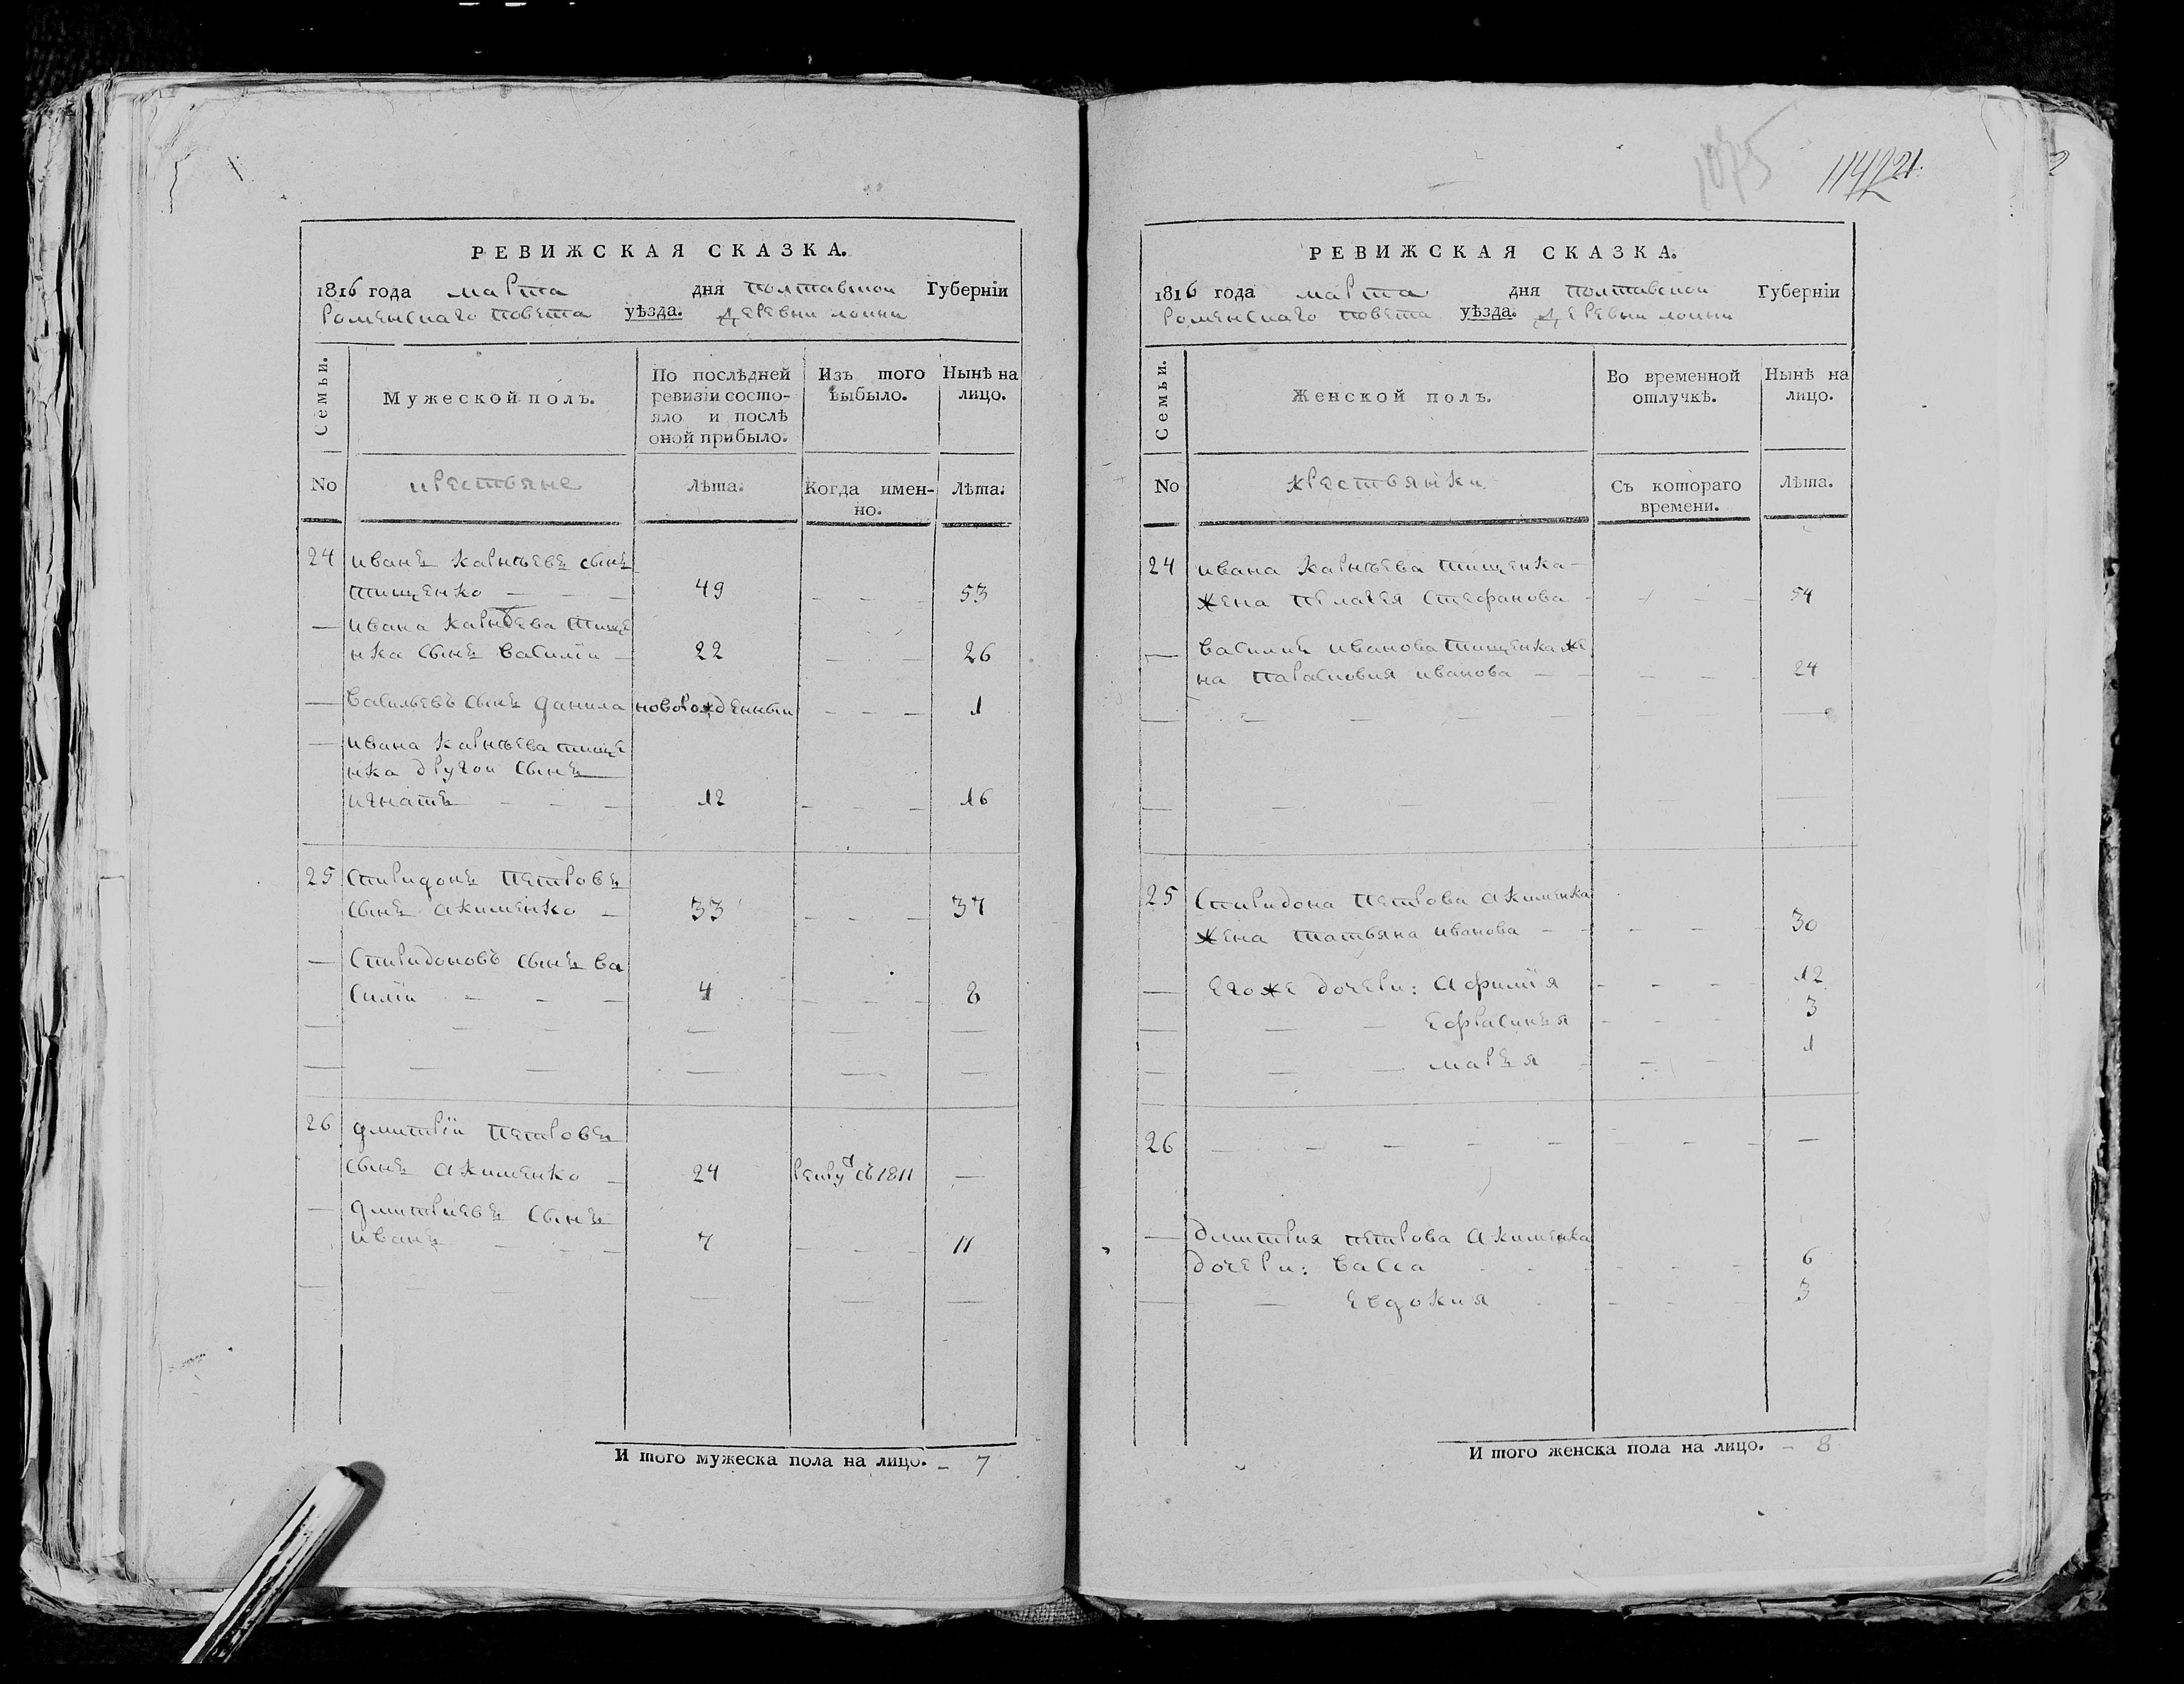 РЕВИЖСКАЯ СКАЗКА.
1816 года марта дня полтавской Губерніи
роменскаго повета уѣзда. деревни
Семьи.
Мужеской полъ.
По послѣдней ревизіи состо-
яло и послѣ
оной прибыло.
Изъ того
выбыло.
Нынѣ на
лицо.
No крестьяне Лѣта. Когда имен-
но. Лѣта.
24 иванъ карнѣевъ сынъ
тищенко — — — 49 — — — 53
— ивана карнѣева тище
нка сынъ василіи — 22 — — 26
— васильевъ сынъ данила новорожденныи — — — 1
— ивана карнѣева тище
нка другои сынъ
игнатъ — — — 12 — — — 16
25 спиридонъ петровъ
сынъ акименко — 33 — — — 37
— спиридоновъ сынъ ва
силіи — — — 4 — — — 8
26 дмитріи петровъ
сынъ акименко — 24 рекру съ 1811 —
— дмитриевъ сынъ
иванъ — — — 7 — — — 11
И того мужеска пола на лицо. — 7
1075 114 221
РЕВИЖСКАЯ СКАЗКА.
1816 года марта дня полтавской Губерніи
роменскаго повета уѣзда. деревни
Семьи.
Женской полъ.
Во временной
отлучкѣ.
Нынѣ на
лицо.
No крестьянки Съ котораго
времени. Лѣта.
24 ивана карнѣева тищенка
жена пелагея стефанова — — — 54
— василия иванова тищенка же
на парасковия иванова — — — 24
25 спиридона петрова акименка
жена татьяна иванова — — — 30
— егоже дочери: афимїя — — — 12
— — — ефрасинья — — — 3
— — — марья — — — 1
26 — — — —
— дмитрия петрова акименка
дочери: васса — — — 6
— — евдокия — — — 3
И того женска пола на лицо. — 8